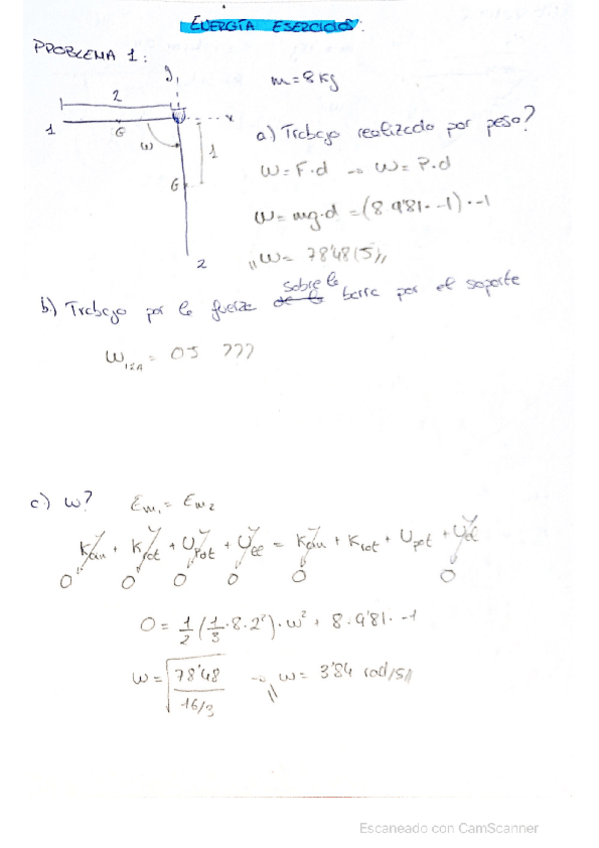 ENERGÍA ESERCICIOS:
PROBLEMA 1:
m=8kg
2
1
G
w
x
1
G
2
a) Trabajo realizado por peso?
W=F.d → W=P.d
W=mg.d =(8.9'81.-1).-1
W= 78'48(J)
sobre la
b) Trabajo por la fuerza de la barra por el soporte
W1,2A = 0J ???
c) w? Em1 = Em2
Kcin + Krot + Upot + Uel = Kcin + Krot + Upot + Uel
0 0 0 0 0 0
0 = 1/2 (1/3 .8.2²).w² + 8.9'81.-1
w = √78'48/16/3 → w= 3'84 rad/s
Escaneado con CamScanner